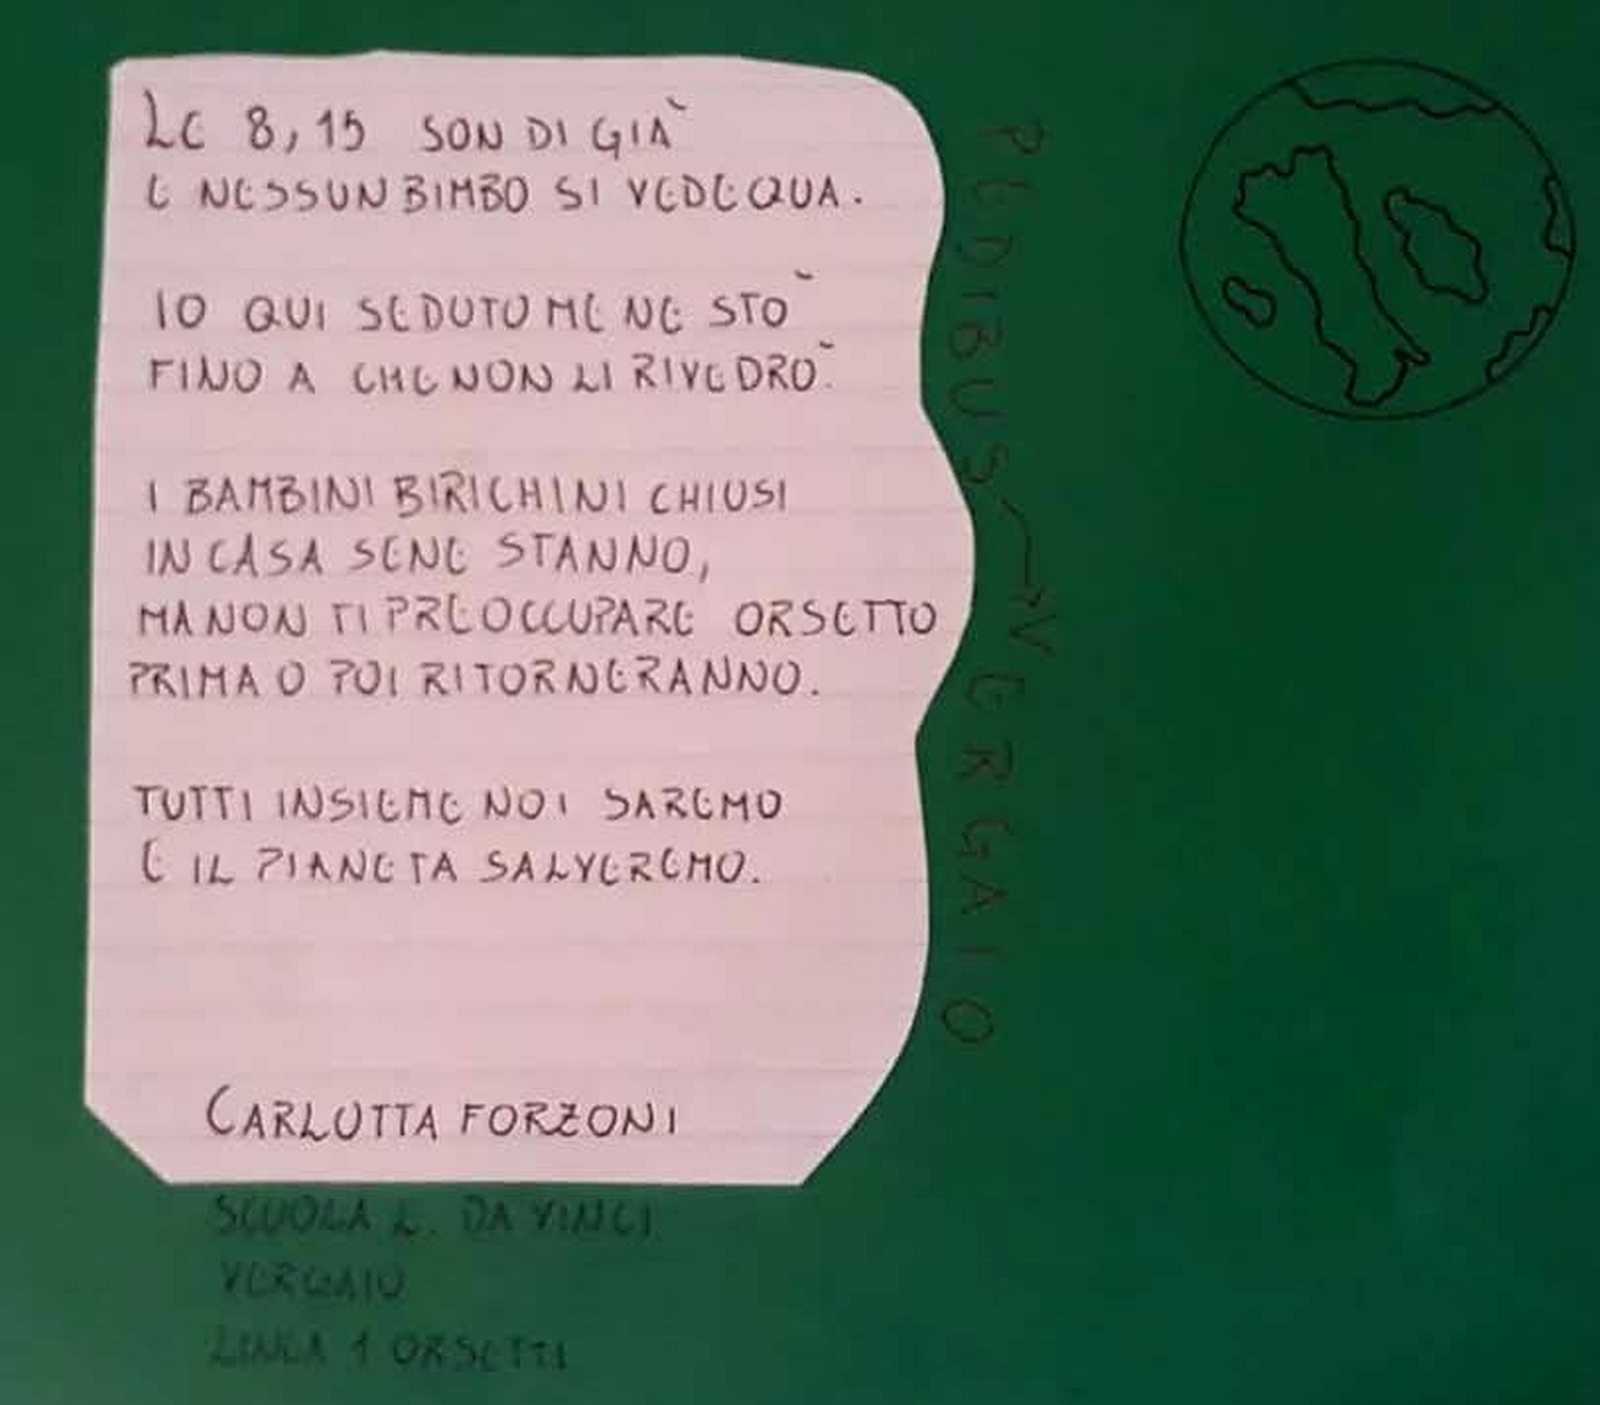 LE 8,15 SON DI GIÀ
E NESSUN BIMBO SI VEDE QUA.
IO QUI SEDUTO ME NE STÒ
FINO A CHE NON LI RIVEDRÒ.
I BAMBINI BIRICHINI CHIUSI
IN CASA SE NE STANNO,
MA NON TI PREOCCUPARE ORSETTO
PRIMA O POI RITORNERANNO.
TUTTI INSIEME NOI SAREMO
E IL PIANETA SALVEREMO.
CARLOTTA FORZONI
SCUOLA L. DA VINCI
VERGAIO
LINEA 1 ORSETTI
PEDIBUS → VERGAIO